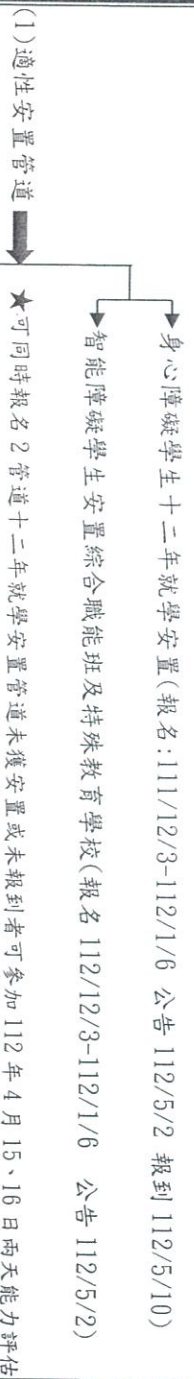 (1)適性安置管道
身心障礙學生十二年就學安置(報名:111/12/3-112/1/6 公告 112/5/2 報到 112/5/10)
智能障礙學生安置綜合職能班及特殊教育學校(報名 112/12/3-112/1/6 公告 112/5/2)
★可同時報名2管道十二年就學安置管道未獲安置或未報到者可參加112年4月15、16日兩天能力評估